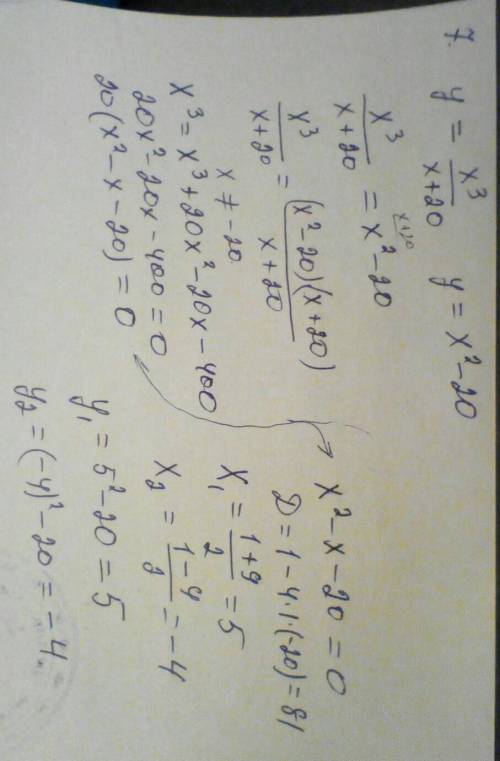 7. y = x³/(x+20)   y = x²-20
x³/(x+20) = x²-20   x+20
x³/(x+20) = (x²-20)(x+20)/(x+20)
x ≠ -20
x³ = x³+20x²-20x-400
20x²-20x-400=0
20(x²-x-20)=0
x²-x-20=0
D=1-4·1·(-20)=81
x₁ = (1+9)/2 = 5
x₂ = (1-9)/2 = -4
y₁ = 5²-20 = 5
y₂ = (-4)²-20 = -4